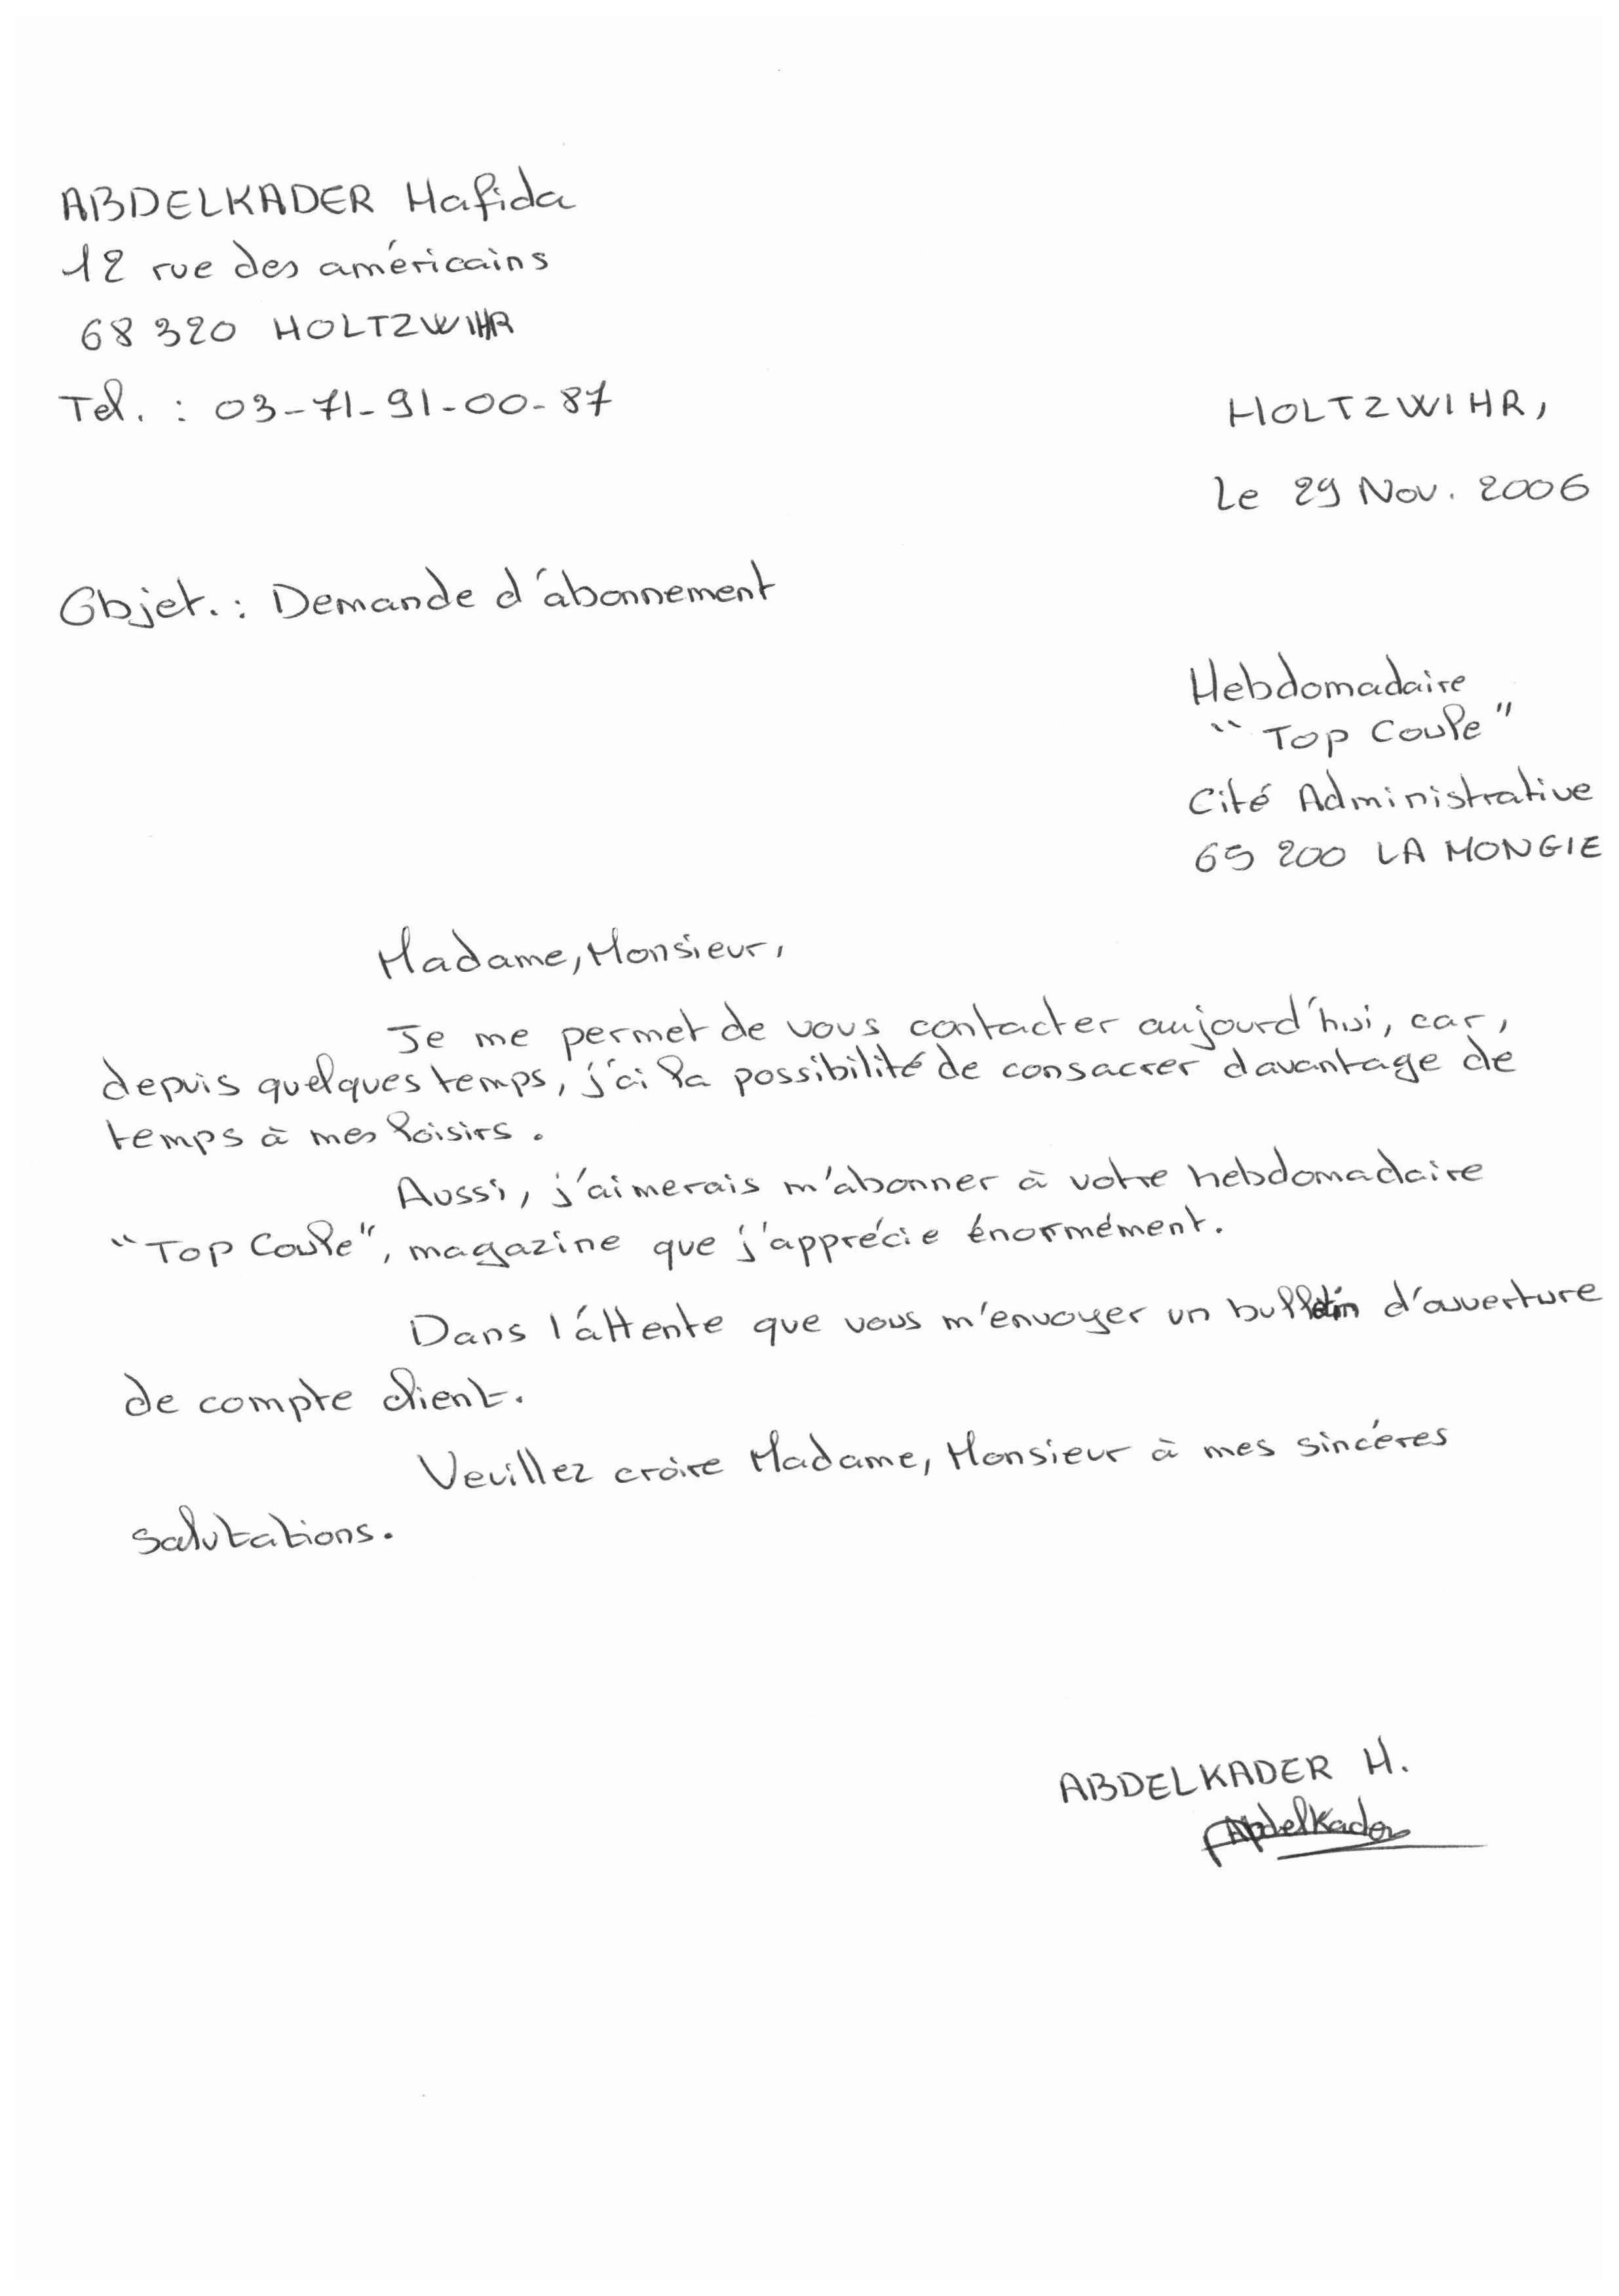 ABDELKADER Hafida
12 rue des américains
68 320 HOLTZWIHR
Tel. : 03-71-91-00-87
HOLTZWIHR,
Le 29 Nov. 2006
Objet. : Demande d'abonnement
Hebdomadaire
"Top Coupe"
Cité Administrative
65 200 LA MONGIE
Madame, Monsieur,
Je me permet de vous contacter aujourd'hui, car,
depuis quelques temps, j'ai la possibilité de consacrer davantage de
temps à mes loisirs.
Aussi, j'aimerais m'abonner à votre hebdomadaire
"Top Coupe", magazine que j'apprécie énormément.
Dans l'attente que vous m'envoyer un bulletin d'ouverture
de compte client.
Veuillez croire Madame, Monsieur à mes sincéres
salutations.
ABDELKADER H.
Abdelkader